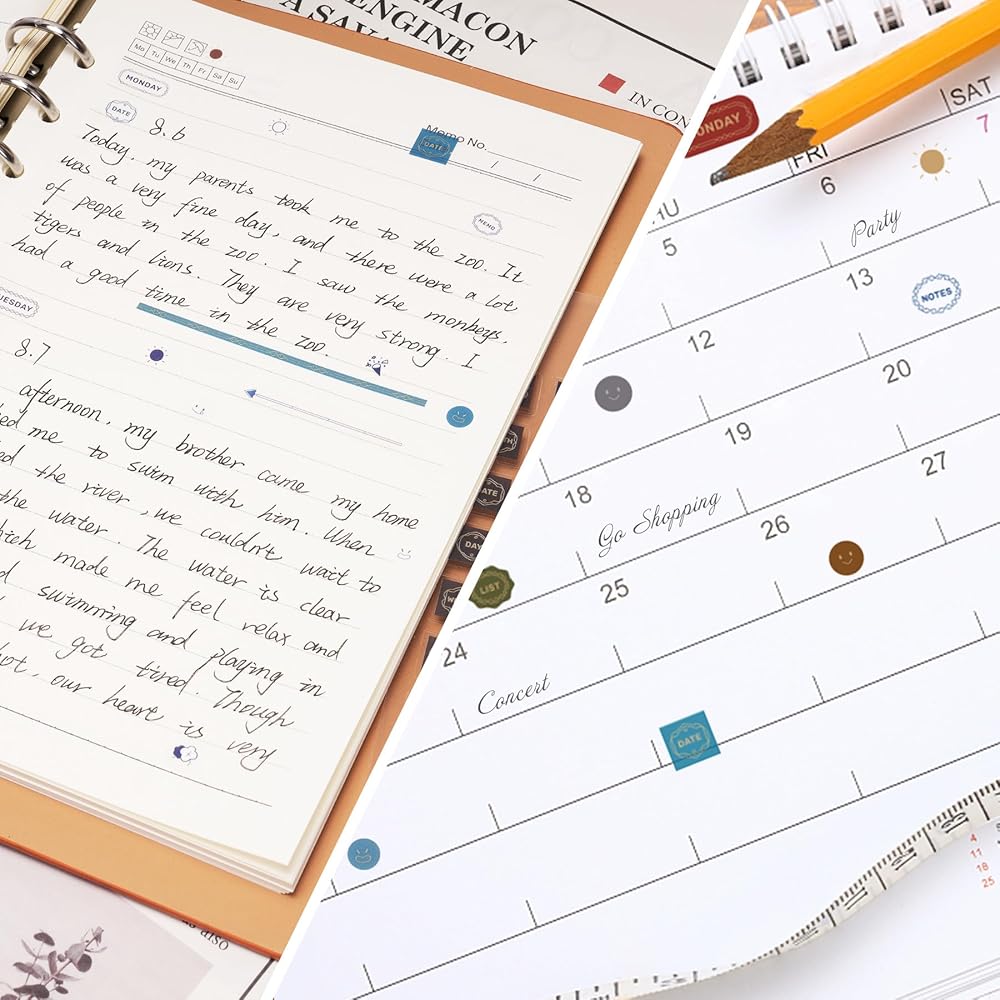 MACON
ENGINE
A SAVA
IN CON
Mo Tu We Th Fr Sa Su
MONDAY
DATE
8.6
Memo No.
DATE
/ /
Today, my parents took me to the zoo. It
was a very fine day, and there were a lot
MEMO
of people in the zoo. I saw the monkeys,
tigers and lions. They are very strong. I
had a good time in the zoo.
TUESDAY
8.7
afternoon, my brother came my home
ed me to swim with him. When
ed the river, we couldn't wait to
the water. The water is clear
hich made me feel relax and
d swimming and playing in
we got tired. Though
hot, our heart is very
ATE
DAY
ONDAY
HU
FRI
SAT
5
6
7
Party
12
13
NOTES
18
19
20
Go Shopping
LIST
24
25
26
27
Concert
DATE
4
11
18
25